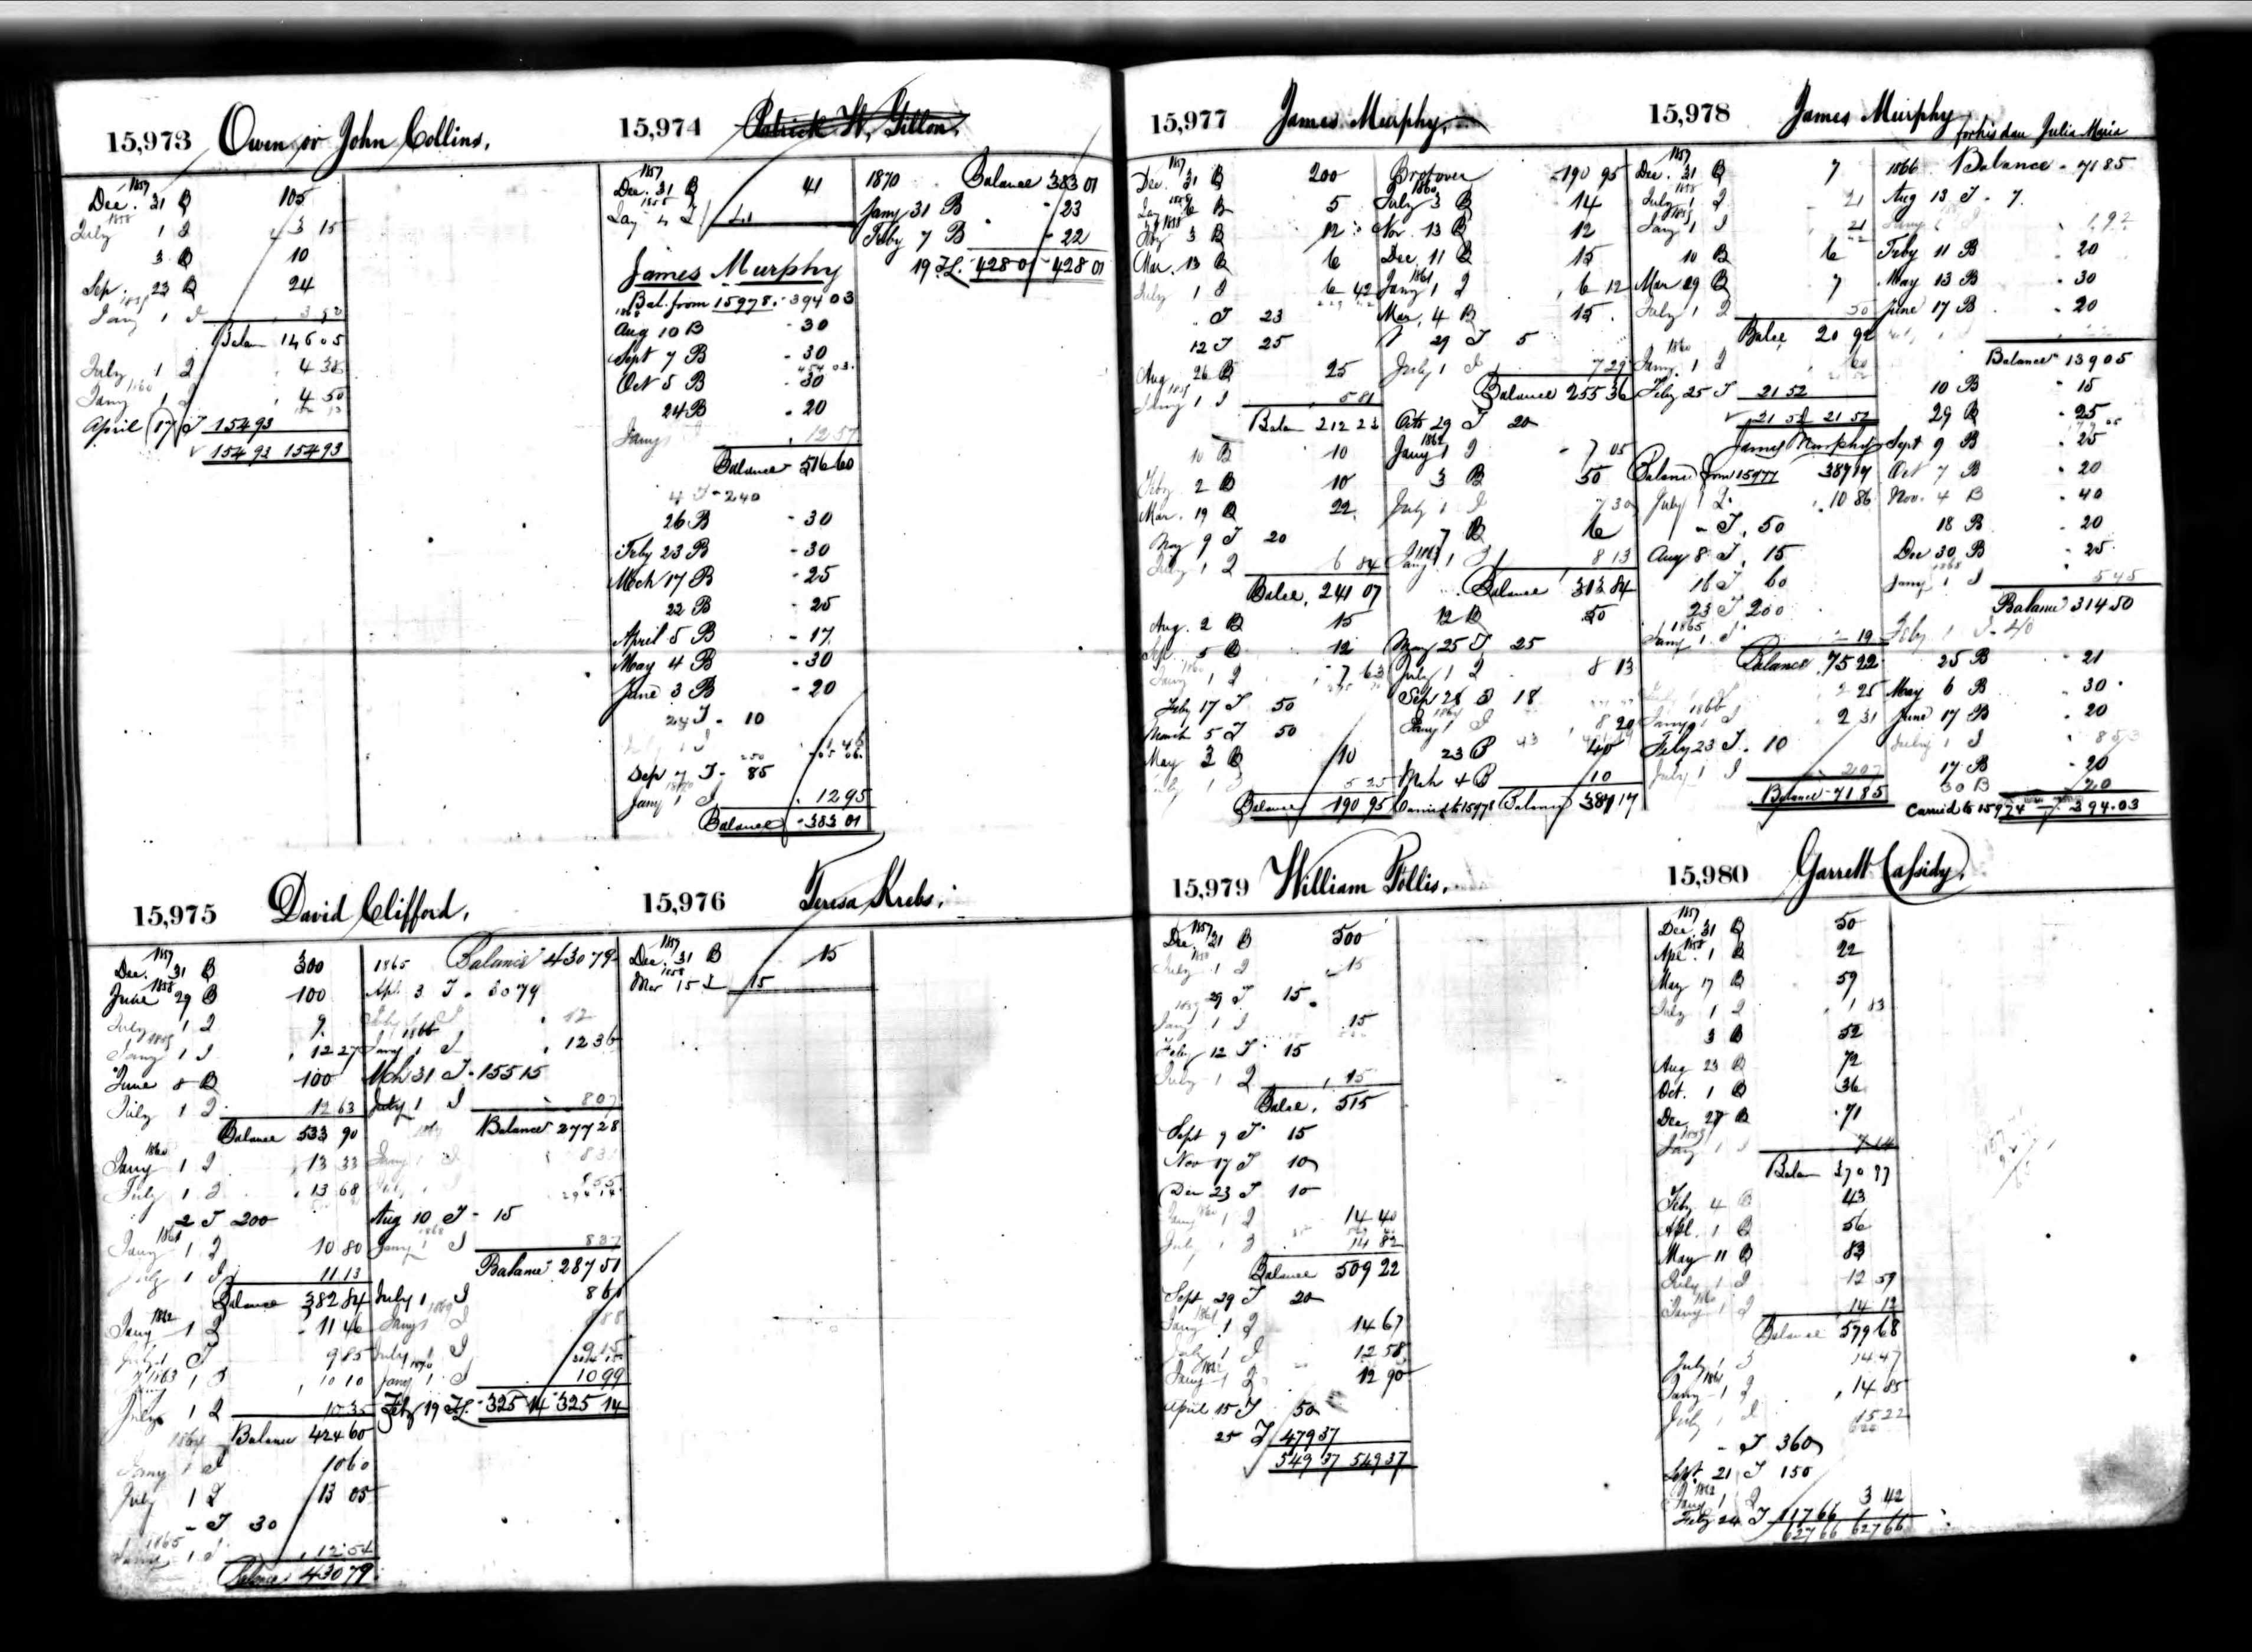 15,973 Owen or John Collins.
1857
Dec. 31 B 105
1858
July 1 I 3 15
3 B 10
Sep. 23 B 24
1859
Jany 1 I 3 90
Balan 146 05
July 1 I 4 38
1860
Jany 1 I 4 50
April 17 T 154 93
154 93 154 93
15,974 Patrick W. Gillon.
1857
Dec. 31 B 41
1858
41
James Murphy
Bal. from 15978. - 394 03
Aug 10 B - 30
Sept 7 B - 30
454 03
Oct 5 B - 30
24 B - 20
Jany 12 57
Balance - 516 60
4 T - 240
26 B - 30
Feby 23 B - 30
Mch 17 B - 25
22 B - 25
April 5 B - 17
May 4 B - 30
June 3 B - 20
24 T - 10
Sep 7 T - 85
1870
Jany 1 I 12 95
Balance - 383 01
1870 Balance 383 01
Jany 31 B - 23
Feby 7 B - 22
19 Tf. 428 01 - 428 01
15,975 David Clifford.
1857
Dec. 31 B 300
1858
June 29 B 100
July 1 I 9
1859
Jany 1 I 12 27
June 8 B 100
July 1 I 12 63
Balance 533 90
1860
Jany 1 I 13 33
July 1 I 13 68
2 T 200
1861
Jany 1 I 10 80
July 1 I 11 13
Balance 382 84
1862
Jany 1 I 11 46
July 1 I 9 85
1863
Jany 1 I 10 10
July 1 I 10 35
Balance 424 60
1864
Jany 1 I 10 60
July 1 I 13 05
- T 30
1865
Jany 1 I 12 54
Balance 430 79
1865 Balance 430 79
Apl. 3 T - 30 79
July 1 I 12
1866
Jany 1 I 12 36
Mch 31 T - 155 15
July 1 I 8 07
Balance 277 28
Jany 1 I 8 31
8 55
294 14
Aug 10 T - 15
1868
Jany 1 I 8 37
Balance 287 51
July 1 I 8 61
1869
Jany 1 I 8 88
July 1 I 9 15
1870
Jany 1 I 10 99
Feby 19 Tf. 325 14 325 14
15,976 Teresa Krebs.
1857
Dec. 31 B 15
1858
Mar 15 T 15
15,977 James Murphy.
1857
Dec. 31 B 200
1858
Jay 6 B 5
3 B 12
Mar. 13 B 6
July 1 I 6 42
T 23
12 T 25
Aug 26 B 25
1859
Jany 1 I 5 81
Balan 212 23
10 B 10
Feby 2 B 10
Mar. 19 B 22
May 9 T 20
July 1 I 6 84
Balce. 241 07
Aug. 2 B 15
Sep. 5 B 12
1860
Jany 1 I 7 63
Feby 17 T 50
March 5 T 50
May 3 B 10
July 1 I 5 25
Balance 190 95
Brot over 190 95
1860
July 3 B 14
Nov. 13 B 12
Dec. 11 B 15
1861
Jany 1 I 6 12
Mar. 4 B 15
29 T 5
July 1 I 7 29
Balance 255 36
Oct 29 T 20
1862
Jany 1 I 7 05
3 B 50
July 1 I 7 30
7 B 6
1863
Jany 1 I 8 13
Balance 313 84
12 B 50
May 25 T 25
July 1 I 8 13
Sep 28 B 18
1864
Jany 1 I 8 20
23 B 40
Mch 4 B 10
Carried to 15978 Balance 387 17
15,978 James Murphy for his dau Julia Maria
1857
Dec. 31 B 7
1858
July 1 I 21
1859
Jany 1 I 21
10 B 6
Mar 29 B 7
July 1 I 50
Balce 20 92
1860
Jany. 1 I 60
Feby 25 T 21 52
21 52 21 52
James Murphy
Balance from 15977 387 17
July 1 I 10 86
- T. 50
Aug 8 T. 15
16 T 60
23 T 200
1865
Jany 1. I 2 19
Balance 75 22
2 25
1866
Jany 1 I 2 31
Feby 23 T. 10
July 1 I 2 07
Balance 71 85
1866 Balance - 71 85
Aug 13 T - 7.
1 92
Feby 11 B 20
May 13 B - 30
June 17 B - 20
Balance 139 05
10 B - 15
29 B - 25
Sept 9 B - 25
Oct 7 B - 20
Nov. 4 B - 40
18 B - 20
Dec 30 B - 25
1868
Jany 1 I 5 45
Balance 314 50
Feby 1 T - 40
25 B - 21
May 6 B - 30
June 17 B - 20
July 1 I 8 53
17 B - 20
30 B 20
Carried to 15974 394.03
15,979 William Pollis.
1857
Dec. 21 B 500
1858
July 1 I 15
29 T 15
1859
Jany 1 I 15
Feby 12 T 15
July 1 I 15
Balce. 515
Sept 9 T 15
Nov 17 T 10
Dec 23 T 10
1860
Jany 1 I 14 40
July 1 I 14 82
Balance 509 22
Sept 29 T 20
1861
Jany 1 I 14 67
July 1 I 12 58
1862
Jany 1 I 12 90
April 15 T 50
25 T 479 37
549 37 549 37
15,980 Garrett Cassidy.
1857
Dec. 31 B 50
1858
Apl. 1 B 22
May 17 B 59
July 1 I 1 83
3 B 52
Aug 23 B 72
Oct. 1 B 36
Dec 27 B 71
1859
Jay 1 I 7 14
Balan 370 97
Feby 4 B 43
Apl. 1 B 56
May 11 B 83
July 1 I 12 59
1860
Jany 1 I 14 12
Balance 579 68
July 1 I 14 47
1861
Jany 1 I 14 85
July 1 I 15 22
- T 360
Sept. 21 T 150
1862
Jany 1 I 3 42
Feby 24 T 117 66
627 66 627 66